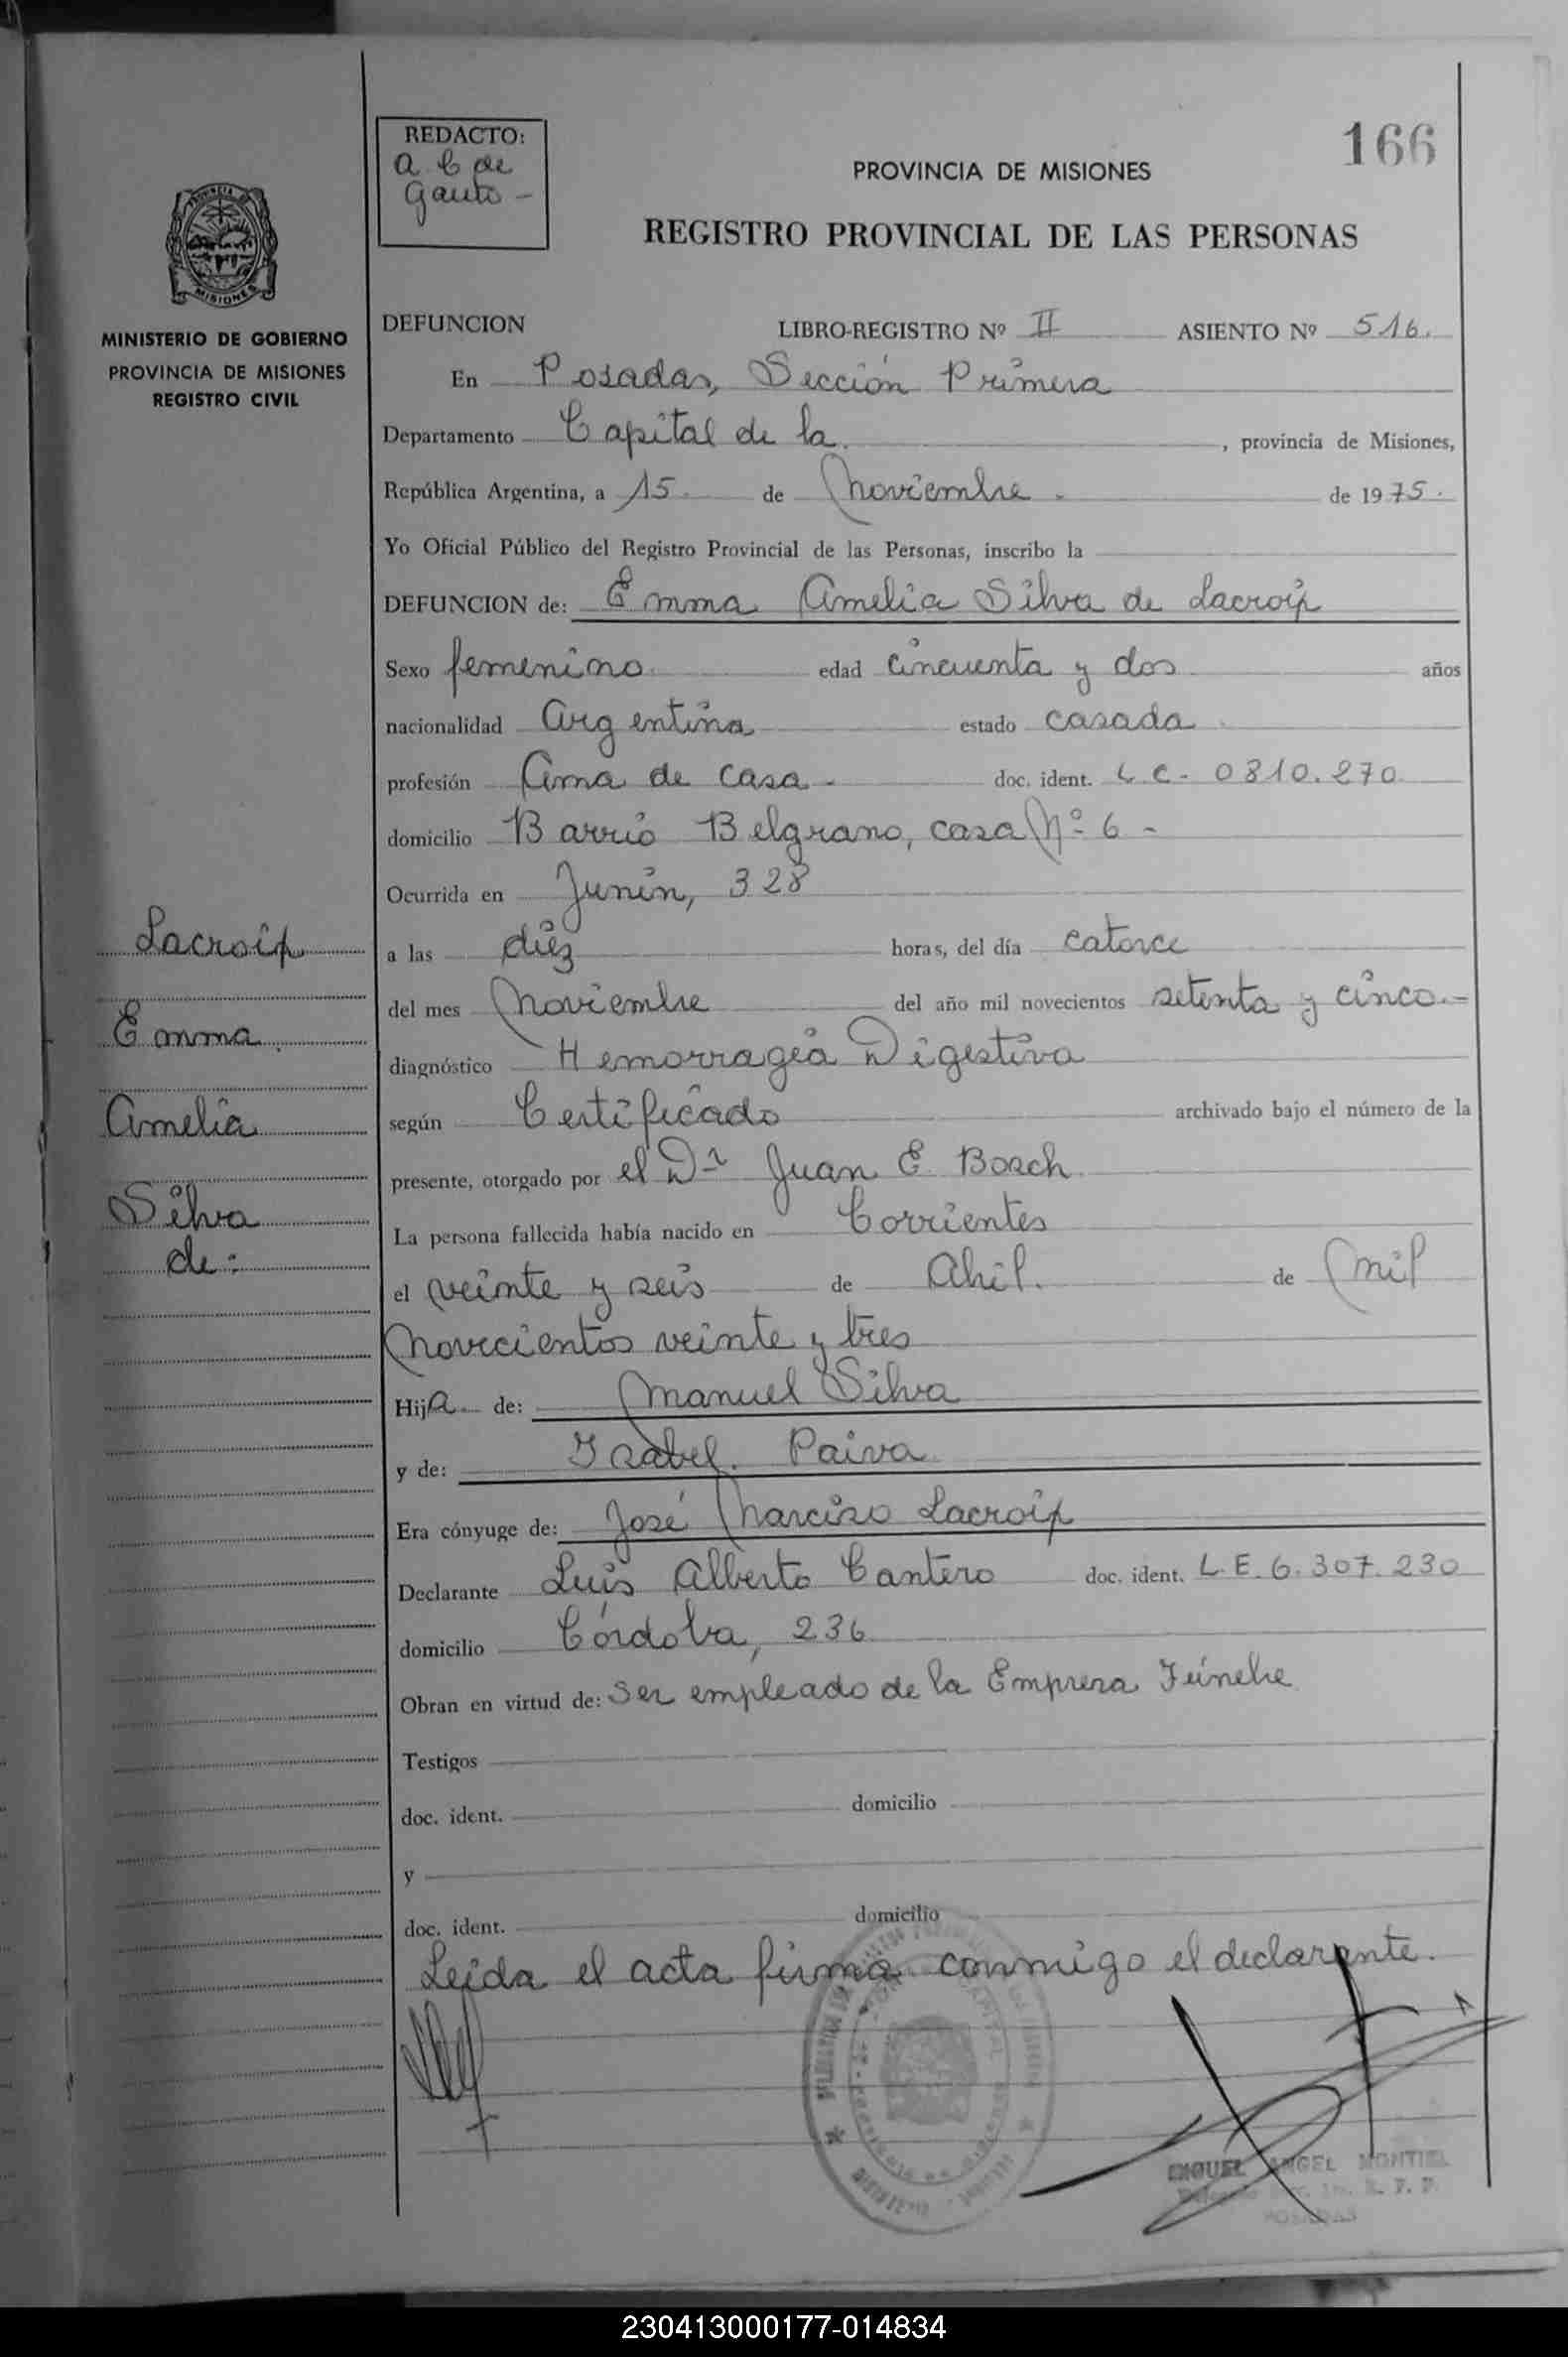 166
REDACTO:
a C de
Gauto -
PROVINCIA DE MISIONES
REGISTRO PROVINCIAL DE LAS PERSONAS
MINISTERIO DE GOBIERNO
PROVINCIA DE MISIONES
REGISTRO CIVIL
DEFUNCION LIBRO-REGISTRO Nº II ASIENTO Nº 516.
En Posadas, Sección Primera
Departamento Capital de la , provincia de Misiones,
República Argentina, a 15. de Noviembre - de 1975.
Yo Oficial Público del Registro Provincial de las Personas, inscribo la
DEFUNCION de: Emma Amelia Silva de Lacroix
Sexo femenino edad cincuenta y dos años
nacionalidad Argentina estado casada
profesión Ama de casa - doc. ident. L C - 0810.270
domicilio Barrio Belgrano, casa Nº 6 -
Ocurrida en Junín, 328
a las diez horas, del día catorce
del mes Noviembre del año mil novecientos setenta y cinco.-
diagnóstico Hemorragia Digestiva
según Certificado archivado bajo el número de la
presente, otorgado por el Dr Juan E Bosch
La persona fallecida había nacido en Corrientes
el veinte y seis de Abril. de Mil
Novecientos veinte y tres
Hija de: Manuel Silva
y de: Isabel. Paiva
Era cónyuge de: José Narciso Lacroix
Declarante Luis Alberto Cantero doc. ident. L.E. 6.307.230
domicilio Córdoba, 236
Obran en virtud de: Ser empleado de la Empresa Fúnebre
Testigos
doc. ident. domicilio
y
doc. ident. domicilio
Leída el acta firma conmigo el declarante.
Lacroix
Emma
Amelia
Silva
de:
MIGUEL ANGEL MONTIEL
R. P. P.
POSADAS
230413000177-014834